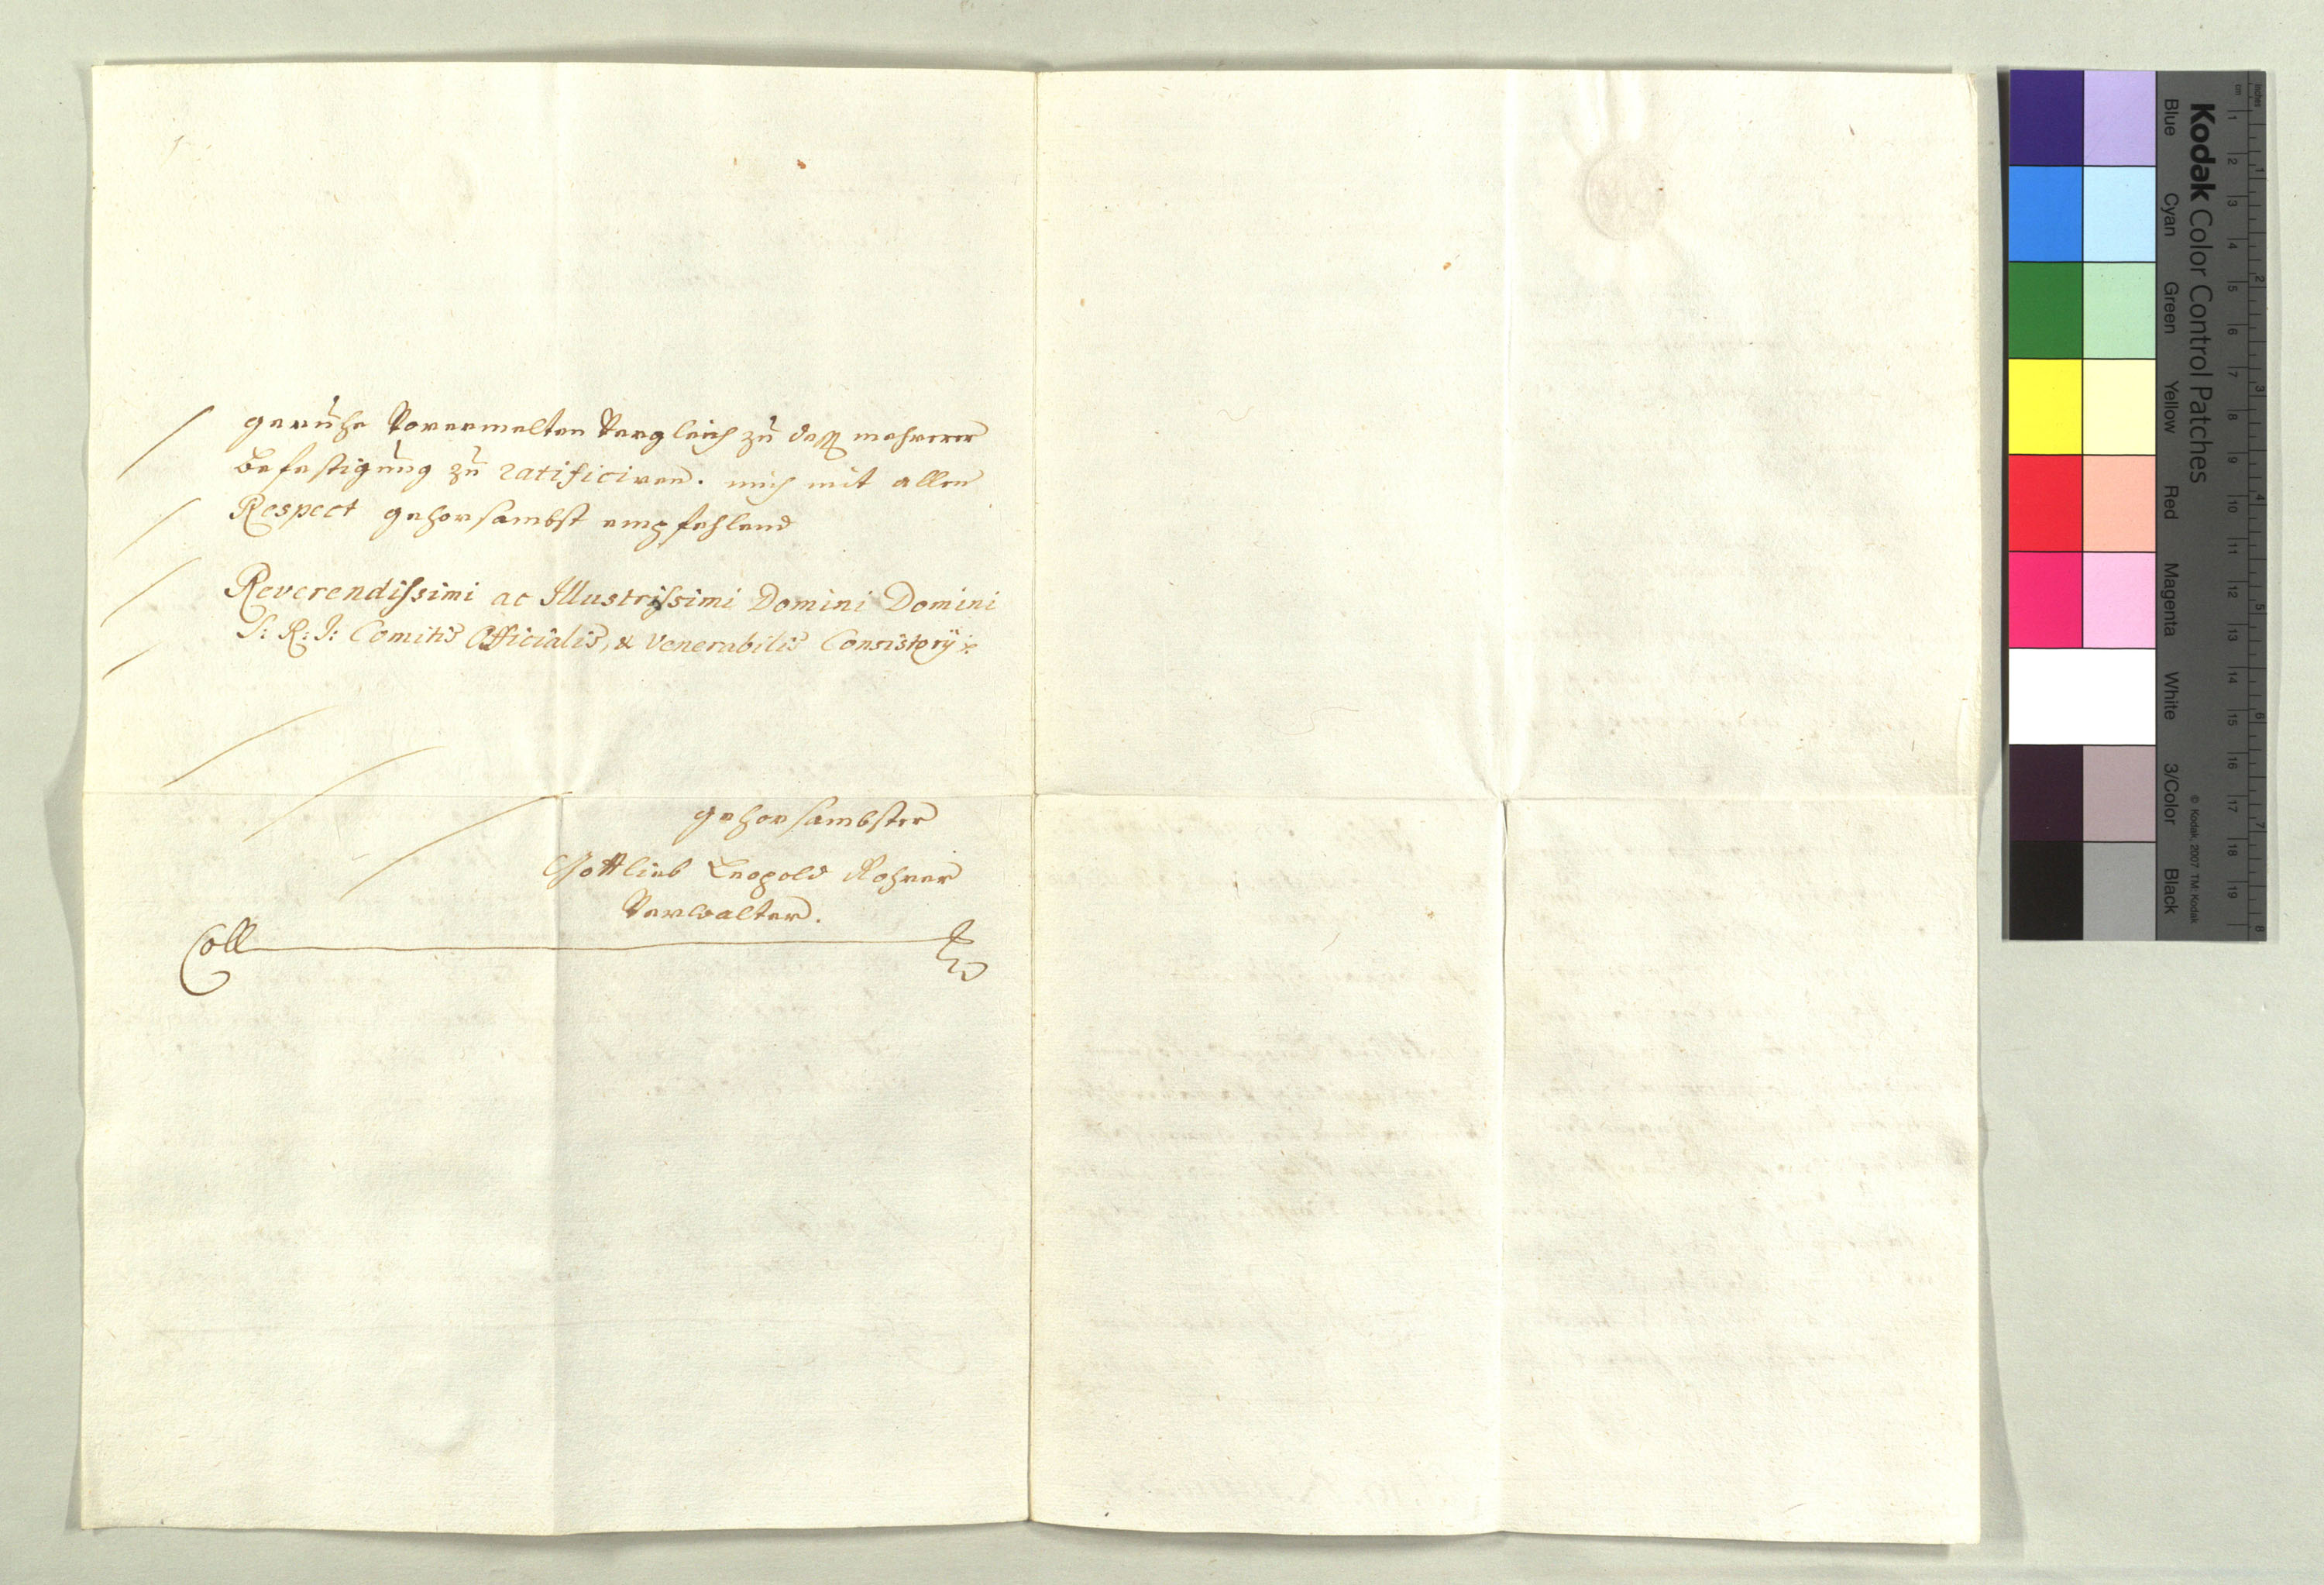 geruhe Vorermelten Vergleich zu deßen mehrerer
Befestigung zu ratificiren. mich mit allen
Respect gehorsambst empfehlend
Reverendissimi ac Illustrissimi Domini Domini
S: R: I: Comitis Officialis, & Venerabilis Consistorij
gehorsambster
Gottlieb Leopold Rohrer
Verwalter.
Coll
Kodak Color Control Patches
Blue Cyan Green Yellow Red Magenta White 3/Color Black
© Kodak 2007 TM: Kodak
cm 1 2 3 4 5 6 7 8 9 10 11 12 13 14 15 16 17 18 19
inches 1 2 3 4 5 6 7 8